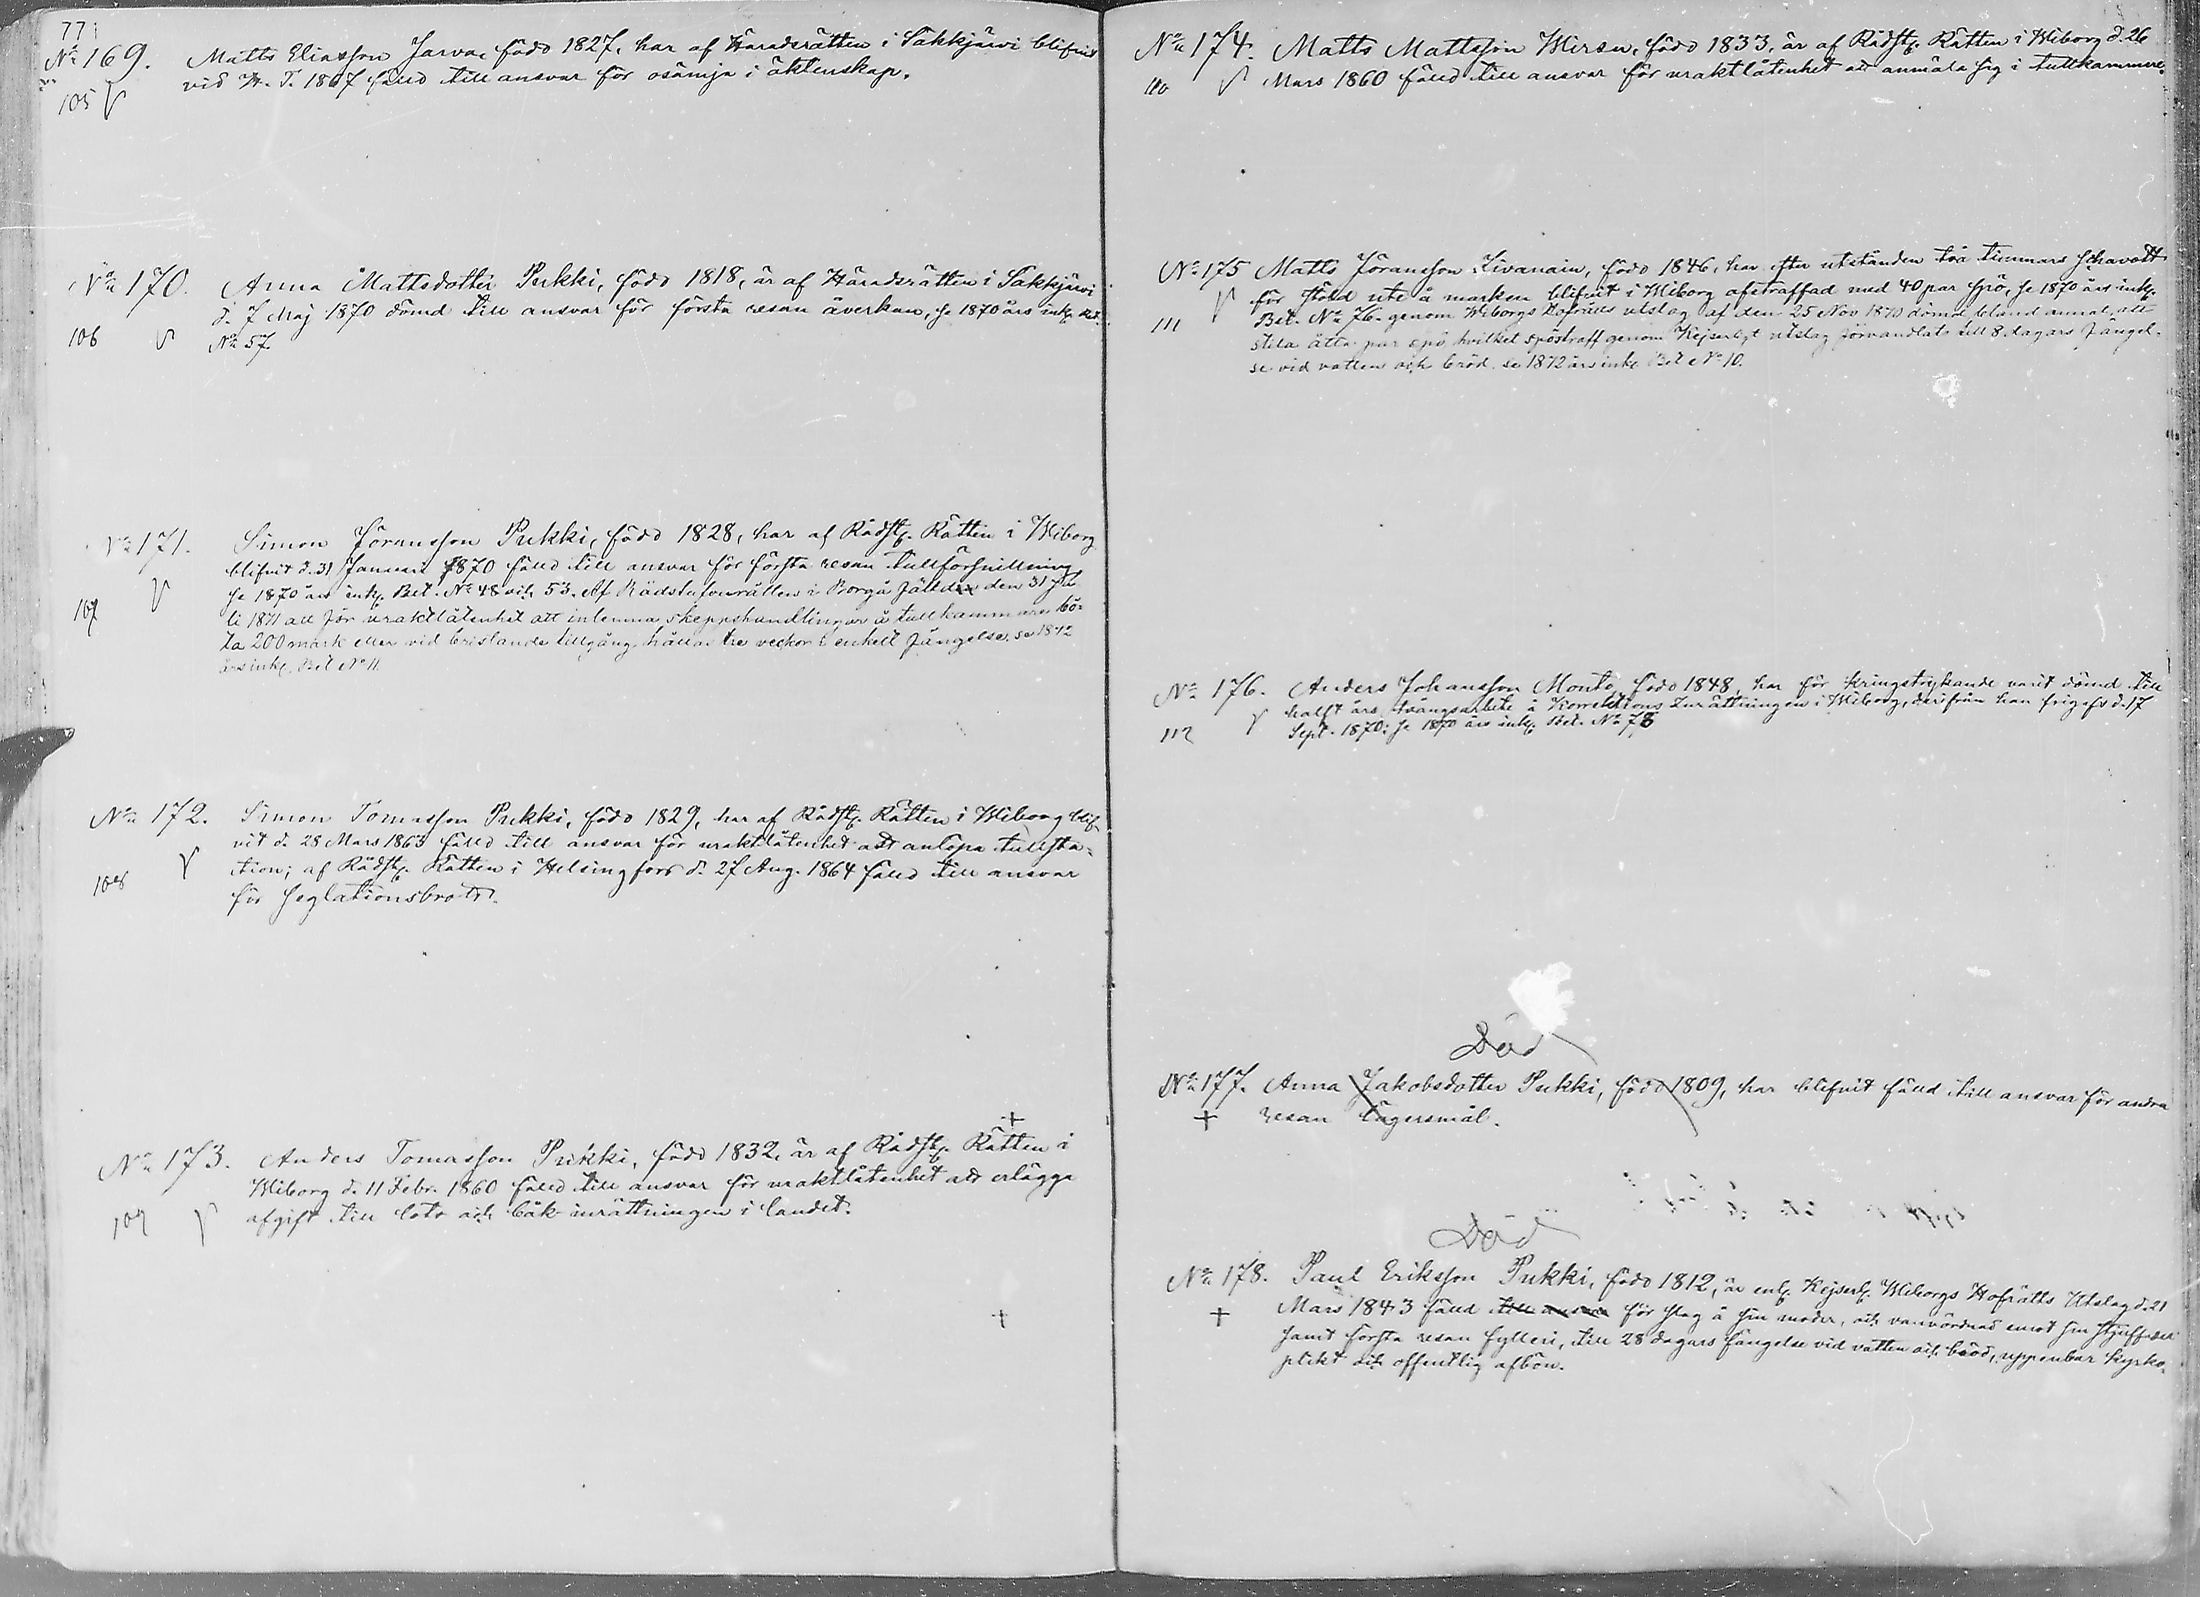 77
No 169. Matts Eliasson Jarva, född 1827, har af Häradsrätten i Säkkjärvi blifvit
vid H. T. 1867 fälld till ansvar för osämja i äktenskap.
105
No 170. Anna Mattsdotter Pukki, född 1818, är af Häradsrätten i Säkkjärvi
d. 7 Maj 1870 dömd till ansvar för första resan åverkan, se 1870 års ink. Bet.
106 No 57.
No 171. Simon Göransson Pukki, född 1828, har af Rådst. Rätten i Wiborg
blifvit d. 31 Januari 1870 fälld till ansvar för första resan tullförsnillning
se 1870 års ink. Bet. No 48 och 53. Af Rådstufvurätten i Borgå fälld den 31 Ju-
107 li 1871 att för uraktlåtenhet att inlemna skeppshandlingar å tullkammare bö-
ta 200 mark eller vid bristande tillgång hållas tre veckor i enkelt fängelse, se 1872
års ink. Bet No 11.
No 172. Simon Tomasson Pukki, född 1829, har af Rådst. Rätten i Wiborg blif-
vit d. 28 Mars 1863 fälld till ansvar för uraktlåtenhet att anlöpa tullsta-
108 tion; af Rådst. Rätten i Helsingfors d. 27 Aug. 1864 fälld till ansvar
för seglationsbrott.
No 173. Anders Tomasson Pukki, född 1832, är af Rådst. Rätten i
Wiborg d. 11 Febr. 1860 fälld till ansvar för uraktlåtenhet att erlägga
109 afgift till lots och båk inrättningen i landet.
No 174. Matts Mattsson Wirsu, född 1833, är af Rådst. Rätten i Wiborg d. 26
110 Mars 1860 fälld till ansvar för uraktlåtenhet att anmäla sig i tullkammare.
No 175 Matts Göransson Kivanain, född 1846, har efter utstånden två timmars schavott
för stöld ute å marken blifvit i Wiborg afstraffad med 40 par spö, se 1870 års ink.
111 Bet. No 76. genom Wiborgs Hofrätts utslag af den 25 Nov 1870 dömd bland annat, att
slita åtta par spö, hvilket spöstraff genom Kejserligt utslag förvandlats till 8 dagars fängel-
se vid vatten och bröd. se 1872 års ink. Bet No 10.
No 176. Anders Johansson Monto, född 1848, har för kringstrykande varit dömd till
halft års tvångsarbete å Korrektions Inrättningen i Wiborg, derifrån han frigafs d. 17
112 Sept. 1870; se 1870 års ink. Bet. No 78
Död
No 177. Anna Jakobsdotter Pukki, född 1809, har blifvit fälld till ansvar för andra
resan lägersmål.
Död
No 178. Paul Eriksson Pukki, född 1812, är enl. Kejserl. Wiborgs Hofrätts Utslag d. 21
Mars 1843 fälld till ansvar för slag å sin moder, och vanvördnad emot sin stjuffader
samt första resan fylleri, till 28 dagars fängelse vid vatten och bröd, uppenbar kyrko-
plikt och offentlig afbön.